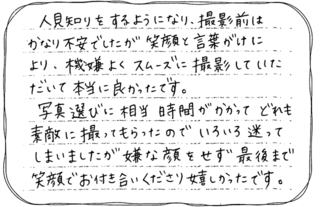 人見知りをするようになり、撮影前は
かなり不安でしたが笑顔と言葉がけに
より、機嫌よくスムーズに撮影していた
だいて本当に良かったです。
写真選びに相当時間がかかってどれも
素敵に撮ってもらったのでいろいろ迷って
しまいましたが嫌な顔をせず最後まで
笑顔でお付き合いくださり嬉しかったです。